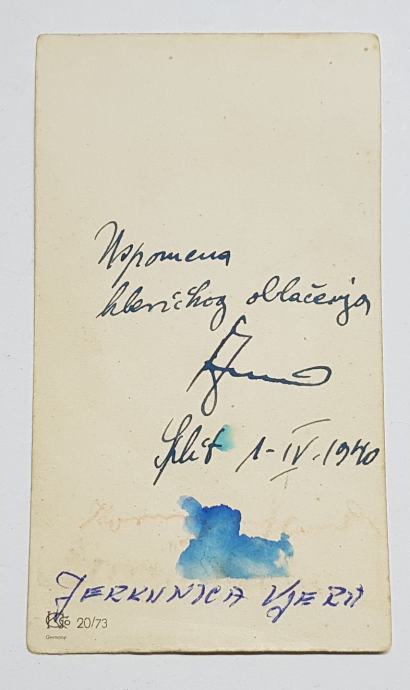 Uspomena
kleričkog oblačenja
Split 1-IV-1940
JERKUNICA VJERA
20/73
Germany